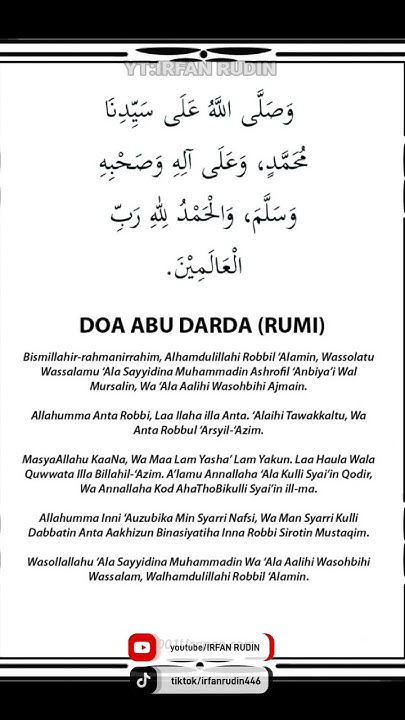 YT:IRFAN RUDIN
وَصَلَّى اللَّهُ عَلَى سَيِّدِنَا
مُحَمَّدٍ، وَعَلَى آلِهِ وَصَحْبِهِ
وَسَلَّمَ، وَالْحَمْدُ لِلَّهِ رَبِّ
الْعَالَمِيْنَ.
DOA ABU DARDA (RUMI)
Bismillahir-rahmanirrahim, Alhamdulillahi Robbil ‘Alamin, Wassolatu
Wassalamu ‘Ala Sayyidina Muhammadin Ashrofil ‘Anbiya’i Wal
Mursalin, Wa ‘Ala Aalihi Wasohbihi Ajmain.
Allahumma Anta Robbi, Laa Ilaha illa Anta. ‘Alaihi Tawakkaltu, Wa
Anta Robbul ‘Arsyil-‘Azim.
MasyaAllahu KaaNa, Wa Maa Lam Yasha’ Lam Yakun. Laa Haula Wala
Quwwata Illa Billahil-‘Azim. A’lamu Annallaha ‘Ala Kulli Syai’in Qodir,
Wa Annallaha Kod AhaThoBikulli Syai’in ill-ma.
Allahumma Inni ‘Auzubika Min Syarri Nafsi, Wa Man Syarri Kulli
Dabbatin Anta Aakhizun Binasiyatiha Inna Robbi Sirotin Mustaqim.
Wasollallahu ‘Ala Sayyidina Muhammadin Wa ‘Ala Aalihi Wasohbihi
Wassalam, Walhamdulillahi Robbil ‘Alamin.
youtube/IRFAN RUDIN
tiktok/irfanrudin446